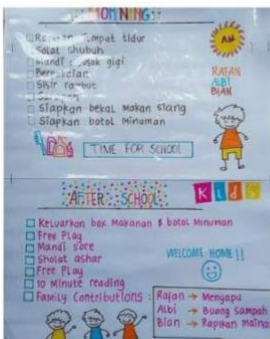 MORNING
AM
Rapikan tempat tidur
Solat shubuh
Mandi & gosok gigi
Berpakaian
Sisir rambut
Sarapan
Siapkan bekal makan siang
Siapkan botol minuman
RAFAN
ALBI
BIAN
TIME FOR SCHOOL
AFTER SCHOOL
Kids
Keluarkan box makanan & botol minuman
Free Play
Mandi sore
Sholat ashar
Free Play
10 Minute reading
Family Contributions :
WELCOME HOME !!
Rafan → Menyapu
Albi → Buang sampah
Bian → Rapikan maina